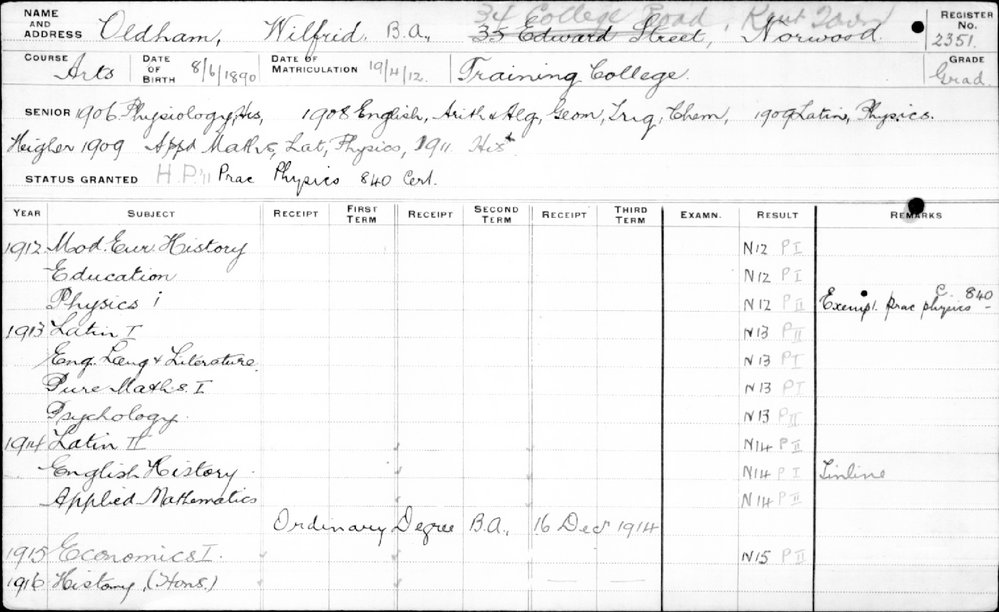 34 College Road, Kent Town
NAME AND ADDRESS Oldham, Wilfrid. B.A., 35 Edward Street, Norwood. REGISTER No. 2351.
COURSE Arts DATE OF BIRTH 8/6/1890 DATE OF MATRICULATION 19/4/12. Training College. GRADE Grad.
SENIOR 1906 Physiology, His, 1908 English, Arith & Alg, Geom, Trig, Chem, 1909 Latin, Physics.
Heigher 1909 Appd Maths, Lat, Physics, 1911 Hist
STATUS GRANTED H.P. '11 Prac Physics 840 Cert.
YEAR SUBJECT RECEIPT FIRST TERM RECEIPT SECOND TERM RECEIPT THIRD TERM EXAMN. RESULT REMARKS
1912 Mod. Eur. History N12 P I
Education N12 P I
Physics i N12 P II Exempt. prac physics - C. 840
1913 Latin I N13 P II
Eng. Lang & Literature. N13 P I
Pure Maths. I N13 P I
Psychology. N13 P II
1914 Latin II N14 P II
English History. N14 P I Tinline
Applied Mathematics N14 P II
Ordinary Degree B.A., 16 Decr 1914
1915 Economics I. N15 P II
1916 History, (Hons.)